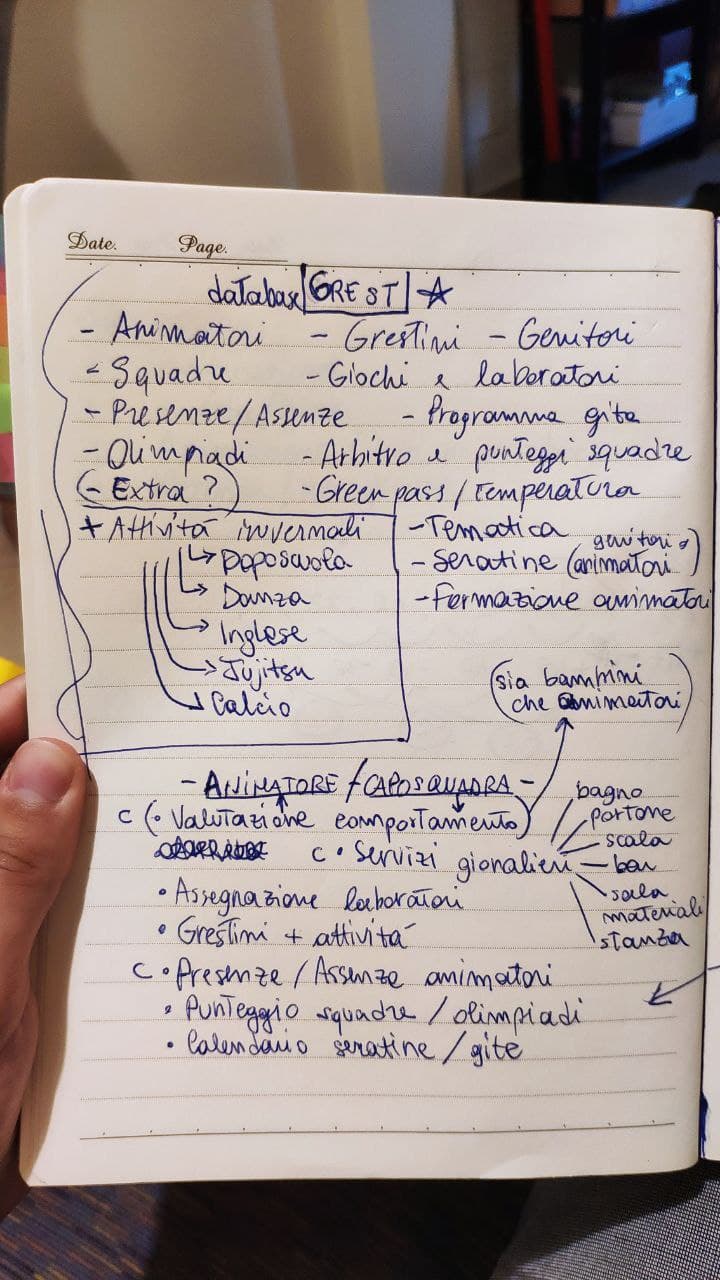 Date. Page.
database GREST
- Animatori - Grestini - Genitori
- Squadre - Giochi e laboratori
- Presenze/Assenze - Programma gite
- Olimpiadi - Arbitro e punteggi squadre
- Extra ? - Green pass/Temperatura
+ Attività invernali
Doposcuola
Danza
Inglese
Jujitsu
Calcio
- Tematica
genitori e
- Seratine (animatori)
- Formazione animatori
(sia bambini
che animatori)
- ANIMATORE / CAPOSQUADRA -
C (• Valutazione comportamento)
C • Servizi gionalieri
bagno
portone
scala
bar
sala
materiali
stanza
• Assegnazione laboratori
• Grestini + attività
C • Presenze/Assenze animatori
• Punteggio squadre/olimpiadi
• Calendario seratine/gite